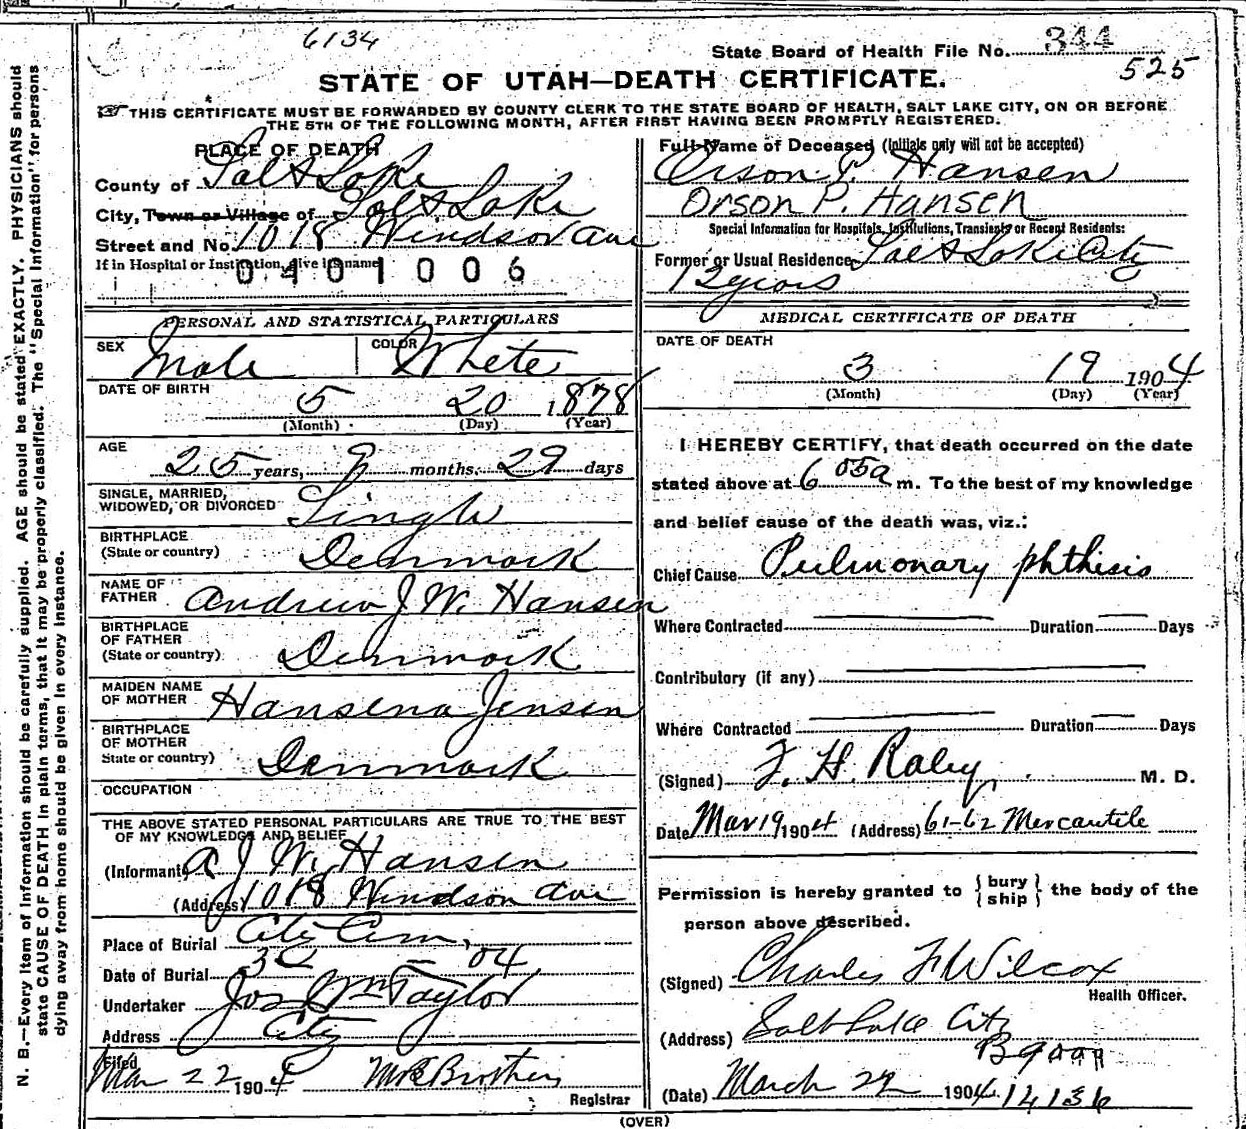 6134
State Board of Health File No. 344
525
STATE OF UTAH—DEATH CERTIFICATE.
THIS CERTIFICATE MUST BE FORWARDED BY COUNTY CLERK TO THE STATE BOARD OF HEALTH, SALT LAKE CITY, ON OR BEFORE
THE 5TH OF THE FOLLOWING MONTH, AFTER FIRST HAVING BEEN PROMPTLY REGISTERED.
PLACE OF DEATH
County of Salt Lake
City, Town or Village of Salt Lake
Street and No. 1018 Windsor Ave
If in Hospital or Institution, give its name
0401006
Full Name of Deceased (Initials only will not be accepted)
Orson P. Hansen
Orson P. Hansen
Special Information for Hospitals, Institutions, Transients or Recent Residents:
Former or Usual Residence Salt Lake City
12 years
PERSONAL AND STATISTICAL PARTICULARS
SEX Male COLOR White
DATE OF BIRTH
5 20 1878
(Month) (Day) (Year)
AGE
25 years, 9 months, 29 days
SINGLE, MARRIED,
WIDOWED, OR DIVORCED Single
BIRTHPLACE
(State or country) Denmark
NAME OF
FATHER Andrew J. W. Hansen
BIRTHPLACE
OF FATHER
(State or country) Denmark
MAIDEN NAME
OF MOTHER Hansena Jensen
BIRTHPLACE
OF MOTHER
State or country) Denmark
OCCUPATION
THE ABOVE STATED PERSONAL PARTICULARS ARE TRUE TO THE BEST
OF MY KNOWLEDGE AND BELIEF
(Informant) A J W. Hansen
(Address) 1018 Windsor Ave
Place of Burial City Cem,
Date of Burial 3 - 04
Undertaker Jos Wm Taylor
Address City
Filed
Mar 22 1904
Registrar
MEDICAL CERTIFICATE OF DEATH
DATE OF DEATH
3 19 1904
(Month) (Day) (Year)
I HEREBY CERTIFY, that death occurred on the date
stated above at 6 05 a m. To the best of my knowledge
and belief cause of the death was, viz.:
Chief Cause Pulmonary phthisis
Where Contracted Duration Days
Contributory (if any)
Where Contracted Duration Days
(Signed) F. H. Raley, M. D.
Date Mar 19 1904 (Address) 61-62 Mercantile
Permission is hereby granted to {bury
ship} the body of the
person above described.
(Signed) Charles F Wilcox
Health Officer.
(Address) Salt Lake City
(Date) March 22 1904. 14136
(OVER)
N. B.—Every item of information should be carefully supplied. AGE should be stated EXACTLY. PHYSICIANS should
state CAUSE OF DEATH in plain terms, that it may be properly classified. The "Special Information" for persons
dying away from home should be given in every instance.